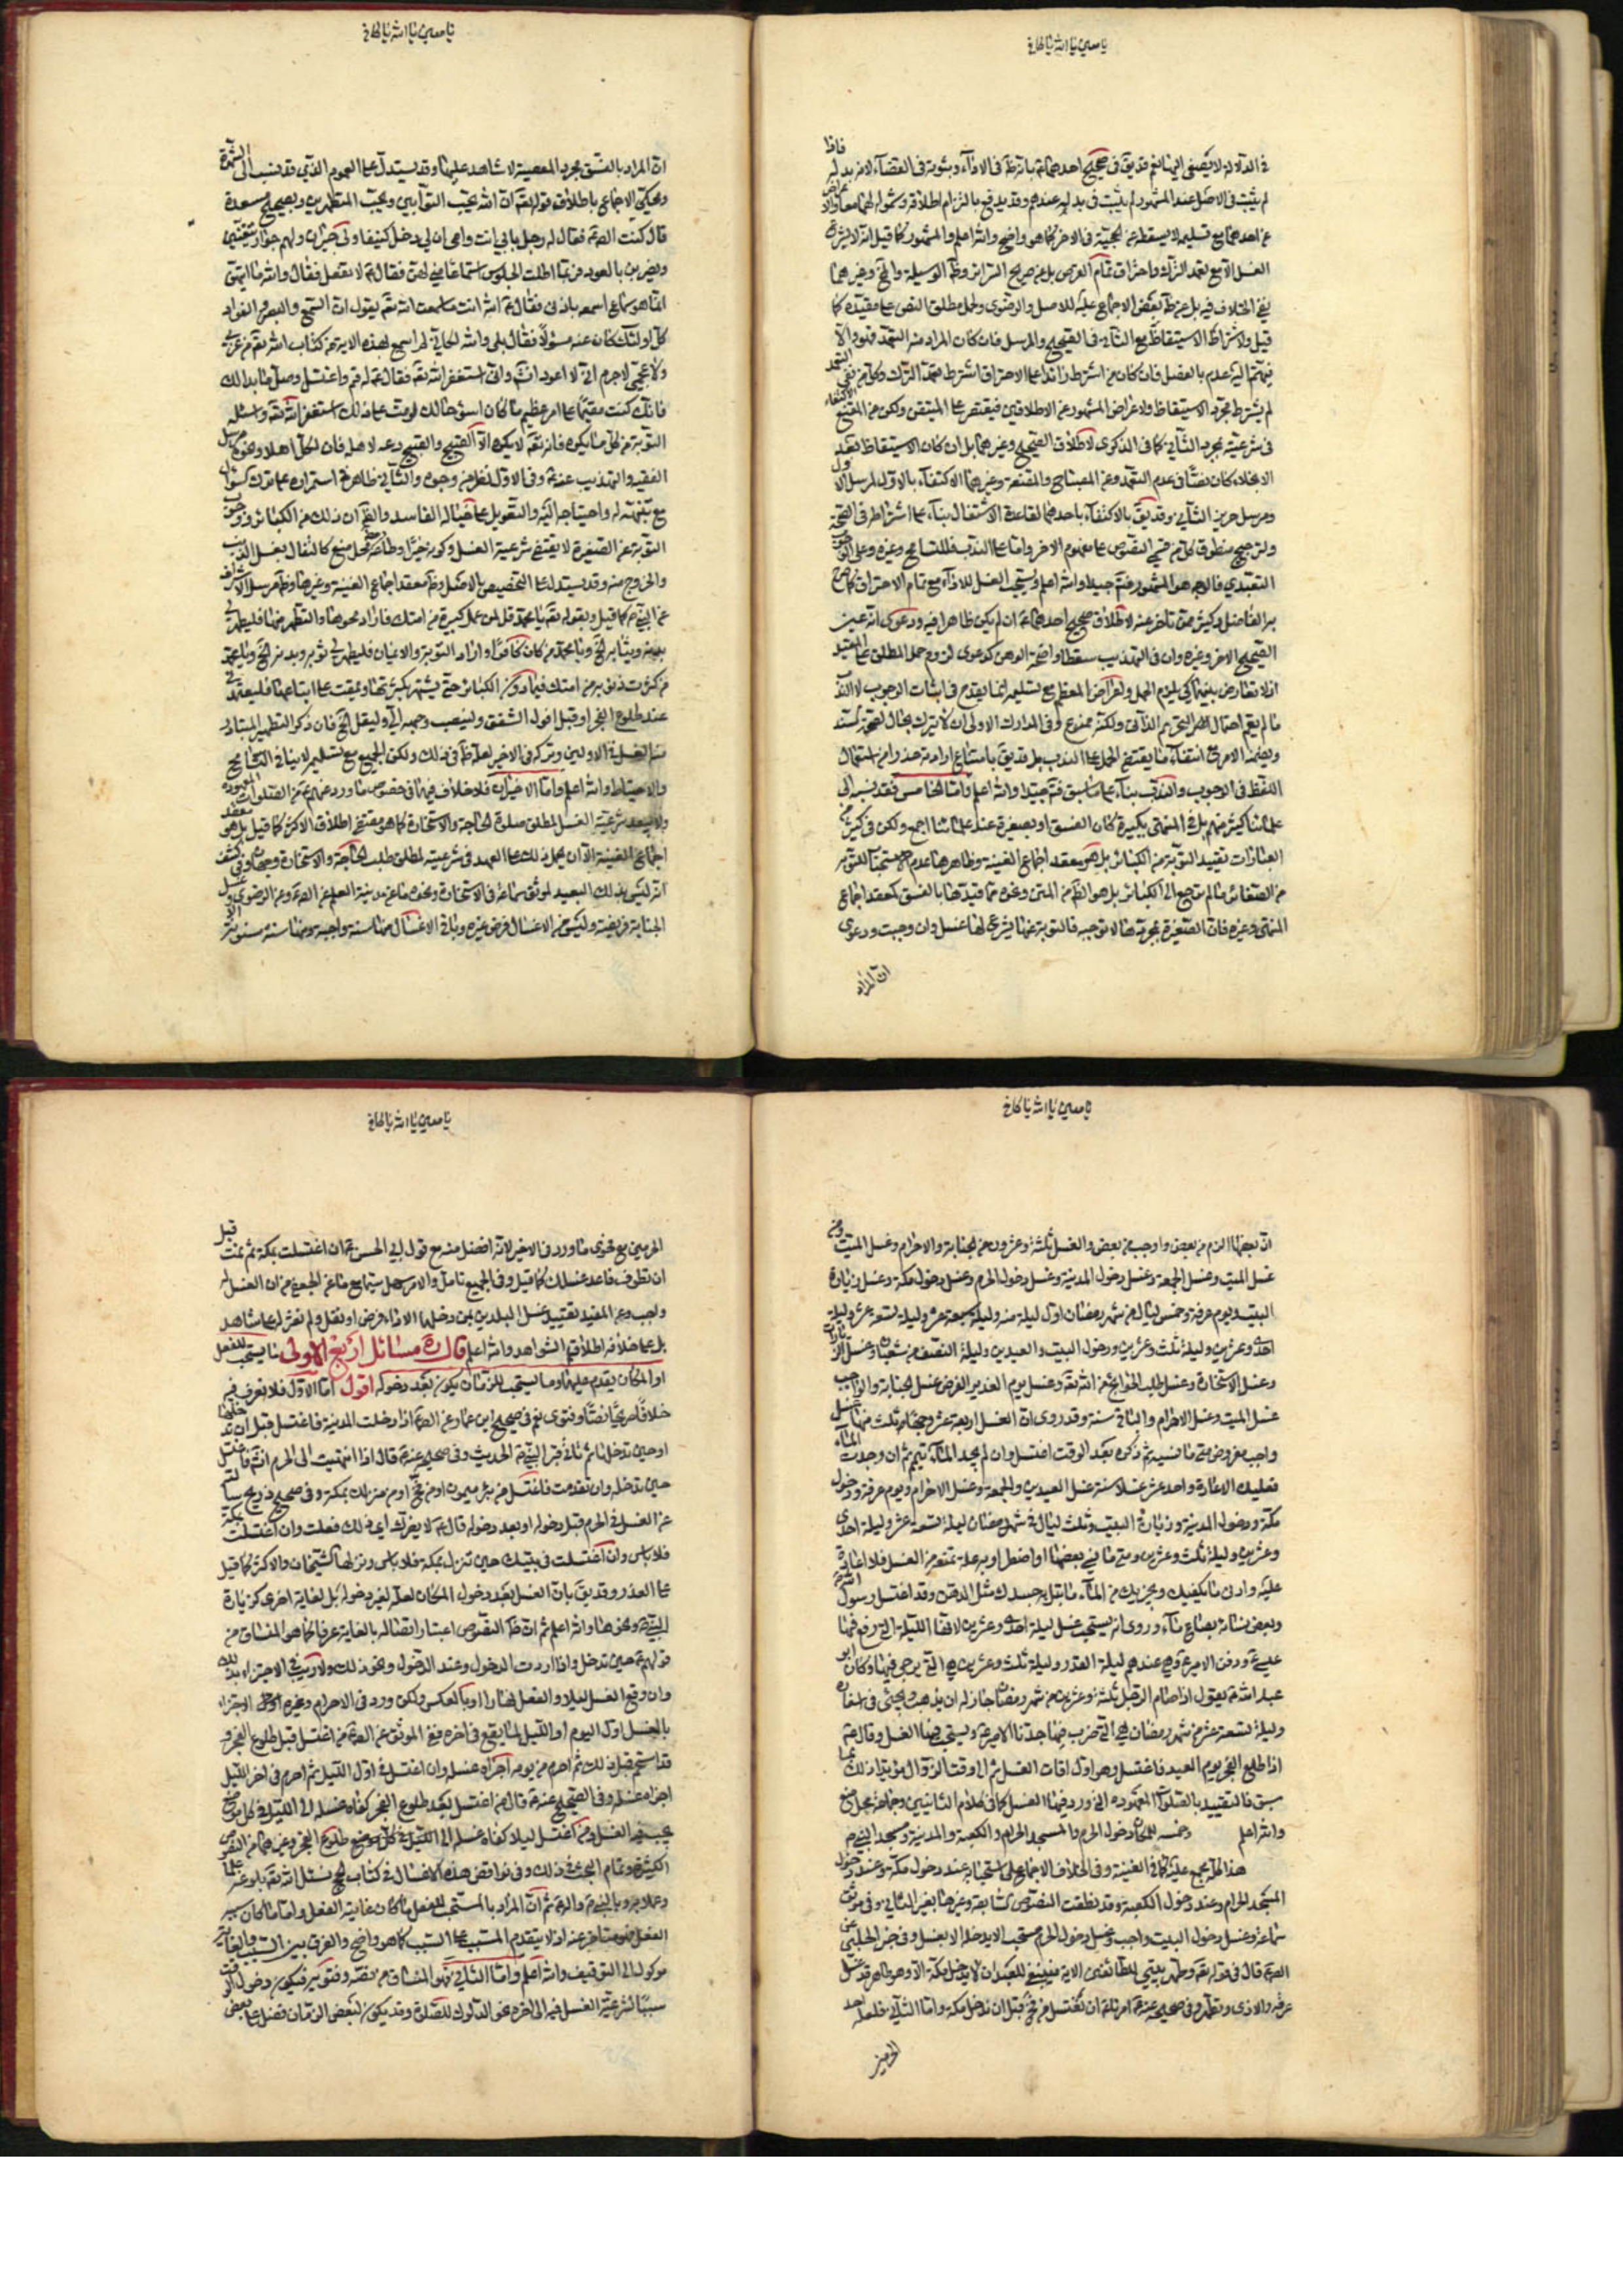 يا معين يا الله يا كافي
في الدلالة لا يصغى اليها نعم قد يق في صحيح احدهما ع بانه ظ في الاداء وثبوته في القضاء لا من بدله فاذا
لم يثبت في الاصل عند المشهور لم يثبت في بدله عندهم وقد يدفع بالتزام اطلاقه وشموله لهما معا
عن احدهما مع تسليمه لا يسقط عن الحجية في الاخر كما هو واضح والله اعلم والمشهور كما قيل انه لا يشرع
الغسل الا مع تعمد الترك واحتراق تمام القرص بل عن صريح السرائر وظ الوسيلة والغنية وغيرهما
نفي الخلاف فيه بل عن ظ بعض الاجماع عليه للاصل والرضوي وحمل مطلق النص على مقيده كما
قيل ولاشتراط الاستيقاظ مع الثاني في الصحيح والمرسل فان كان المراد منه التعمد فهو والا
لم يشترط بمجرد الاستيقاظ ولاعراض المشهور عن الاطلاقين فيقتصر على المتيقن ولكن عن المقنع
في شرعيته بمجرد الثاني كما في الذكرى لاطلاق الصحيح وغيرهما بل ان كان الاستيقاظ بعد
الانجلاء كان نصا في عدم التعمد وعن المصباح والمقنعة وغيرهما الاكتفاء بالاول لمرسل
ومرسل حريز الثاني وقد يق بالاكتفاء باحدهما لقاعدة الاشتغال بناء على اشتراطه في الصحة
التعبدي فالاجود هو المشهور فتوى جيدا والله اعلم ويستحب الغسل للاداء مع تمام الاحتراق كما صرح
به الفاضل وكثير ممن تاخر عنه لاطلاق صحيح احدهما ع ان لم يكن ظاهرا فيه ودعوى انه عين
الصحيح الاخر وغيره وان في التهذيب سقطا واضحة الوهن كدعوى لزوم حمل المطلق على المقيد
اللفظ في الوجوب والندب بناء على ما سبق فتوى جيدا والله اعلم واما الخامس فقد نسبه الى
علمائنا كثير منهم بل في المنتهى بكبيرة كان الفسق او بصغيرة عند علمائنا اجمع ولكن في كثير من
العبارات تقييد التوبة من الكبائر بل هو معقد اجماع الغنية وظاهرها عدم استحبابه للتوبة
من الصغائر ما لم يرجع الى الكبائر بل هو الظ من المتن وغيره مما قيد فيها بالفسق كمعقد اجماع
المنتهى وغيره فان الصغيرة بمجردها لا توجبه فالتوبة عنها لا يشرع لها غسل وان وجبت ودعوى
ان المراد
يا معين يا الله يا كافي
ان المراد بالفسق مجرد المعصية لا شاهد عليها وقد يستدل على العموم الذي قد ينسب الى الشهرة
ويحكى الاجماع باطلاق قوله تعه ان الله يحب التوابين ويحب المتطهرين وبصحيح مسعدة
قال كنت عند الصه ع فقال له رجل بابي انت وامي ان لي دخل كنيفا ولي جيران ولهم جوار يتغنين
ويضربن بالعود فربما اطلت الجلوس استماعا مني لهن فقال ع لا تفعل فقال والله ما اتيتهن
انما هو سماع اسمعه باذني فقال ع لله انت ما سمعت الله تعه يقول ان السمع والبصر والفؤاد
كل اولئك كان عنه مسئولا فقال بلى والله لكاني لم اسمع بهذه الاية من كتاب الله تعه من عربي
ولا عجمي لا جرم اني لا اعود انش واني استغفر الله تعه فقال ع له قم واغتسل وصل ما بدا لك
فانك كنت مقيما على امر عظيم ما كان اسوء حالك لو مت على ذلك استغفر الله تعه واسئله
التوبة من كل ما يكره فانه تعه لا يكره الا القبيح والقبيح دعه لاهله فان لكل اهلا
الفقيه والتهذيب عنه ع وفي الاول نظر من وجوه والثاني ظاهر في استمراره على ترك
مع تفهمته له واحتياجه اليه والتعويل على خياله الفاسد والقران ذلك من الكبائر ووجوب
التوبة عن الصغيرة لا يقتضي شرعية الغسل وكونه خيرا وطاعة محل منع كالتفال بغسل الذنب
والخروج منه وقد يستدل على التخصيص بالاصل وظ معقد اجماع الغنية وغيرها وظ مرسل
عن النبي ص كما قيل وبقوله تعه يا محمد قل لمن عمل كبيرة من امتك فاراد محوها والتطهر منها فليطهر لي
بدنه وثيابه الخ ويا محمد من كان كافرا واراد التوبة والايمان فليطهر لي ثوبه وبدنه الخ ويا محمد
عند طلوع الفجر او قبل افول الشفق ولينصب وجهه الي وليقل الخ فان ذكر التطهير المتبادر
منه الغسل في الاولين وتركه في الاخير لعله ظ في ذلك ولكن الجميع مع تسليمه لا ينافي التسامح
والاحتياط والله اعلم واما الاخيران فلا خلاف فيهما في خصوص ما ورد عنهم ع من الصلوات
ولا يبعد شرعية الغسل المطلق صلوة الحاجة والاستخارة كما هو مقتضى اطلاق الاكثر كما قيل بل هو معقد
اجماع الغنية الا ان يحمل ذلك على العهد في شرعيته لمطلق طلب الحاجة والاستخارة وجهان
الجنابة فريضة وليس من الاغسال فرض غيره وباقي الاغسال منها سنة واجبة ومنها سنة مسنونة
يا معين يا الله يا كافي
ان بعضها الزم من بعض واوجب من بعض والغسل ثلثة وعشرون من الجنابة والاحرام وغسل الميت ومن
غسل الميت وغسل الجمعة وغسل دخول المدينة وغسل دخول الحرم وغسل دخول مكة وغسل زيارة
البيت ويوم عرفة وخمس ليال من شهر رمضان اول ليلة منه وليلة سبعة عشر وليلة تسعة عشر وليلة
احدى وعشرين وليلة ثلث وعشرين ودخول البيت والعيدين وليلة النصف من شعبان وغسل
وغسل الاستخارة وغسل طلب الحوائج من الله تعه وغسل يوم الغدير الفرض غسل الجنابة والواجب
غسل الميت وغسل الاحرام والباقي سنة وقد روى ان الغسل اربعة عشر وجها ثلث منها غسل
واجب مفروض متى ما نسيه ثم ذكره بعد الوقت اغتسل وان لم يجد الماء تيمم ثم ان وجدت الماء
فعليك الاعادة واحد عشر غسلا سنة غسل العيدين والجمعة وغسل الاحرام ويوم عرفة ودخول
مكة ودخول المدينة وزيارة البيت وثلث ليال في شهر رمضان ليلة تسعة عشر وليلة احدى
وعشرين وليلة ثلث وعشرين ومتى ما نسي بعضها او اضطر او به علة تمنعه من الغسل فلا اعادة
عليه وادنى ما يكفيك ويجزيك من الماء ما تبل به جسدك مثل الدهن وقد اغتسل رسول الله ص
وبعض نسائه بصاع من ماء وروى انه يستحب غسل ليلة احدى وعشرين لانها الليلة التي رفع فيها
عيسى ع ودفن الامير ع وهي عندهم ليلة القدر وليلة ثلث وعشرين هي التي يرجى فيها وكان ابو
عبد الله ع يقول اذا صام الرجل ثلثة وعشرين من شهر رمضان جاز له ان يذهب ويجيء في اسفاره
وليلة تسعة عشر من شهر رمضان هي التي ضرب فيها جدنا الامير ع ويستحب فيها الغسل وقال ع
اذا طلع الفجر يوم العيد فاغتسل وهو اول اوقات الغسل ثم الى وقت الزوال مؤيدا ذلك بما
سبق فالتقييد بالصلوات المعهودة التي ورد فيها الغسل كما في كلام الثانيين وجماعة محل منع
والله اعلم وخمسة للمكان دخول الحرم والمسجد الحرام والكعبة والمدينة ومسجد النبي ص
هذا كله مجمع عليه كما في الغنية وفي الخلاف الاجماع على استحبابه عند دخول مكة وعند دخول
المسجد الحرام وعند دخول الكعبة وقد نطقت النصوص السابقة وغيرها بغير الثاني وفي موثق
سماعة وغسل دخول البيت واجب وغسل دخول الحرم يستحب الا يدخله الا بغسل وفي خبر الحلبي عن
الصه ع قال في قوله تعه وطهر بيتي للطائفين الاية فينبغي للعبد ان لا يدخل مكة الا وهو طاهر قد غسل
عرقه والاذى وتطهر وفي صحيحه عنه ع امرنا ع ان نغتسل من فخ قبل ان ندخل مكة واما الثاني فلعله احد
الحرمين
يا معين يا الله يا كافي
الحرمين مع فحوى ما ورد في الاخير لانه افضل منه مع قول ابي الحسن ع ان اغتسلت بمكة ثم نمت قبل
ان تطوف فاعد غسلك كما قيل وفي الجميع تامل والامر سهل سيما مع ما عن الجعفي من ان الغسل له
واجب وعن المفيد تقييد غسل البلدين لمن دخلهما لاداء فرض او نفل ولم نعثر له على شاهد
بل على خلافه اطلاق الشواهد والله اعلم قال ره مسائل اربع الاولى ما يستحب للفعل
او المكان يقدم عليهما وما يستحب للزمان يكون بعد دخوله اقول اما الاول فلا نعرف فيه
خلافا صريحا نصا وفتوى نعم في صحيح ابن عمار عن الصه ع اذا دخلت المدينة فاغتسل قبل ان تدخلها
او حين تدخلها ثم تاتي قبر النبي ص الحديث وفي صحيحه عنه ع قال اذا انتهيت الى الحرم انش فاغتسل
حين تدخله وان تقدمت فاغتسل من بئر ميمون او من فخ او من منزلك بمكة وفي صحيح ذريح سئلته
عن الغسل في الحرم قبل دخوله او بعد دخوله قال ع لا يضرك اي ذلك فعلت وان اغتسلت بمكة
فلا باس وان اغتسلت في بيتك حين تنزل بمكة فلا باس ونزلها الشيخان والاكثر كما قيل
على العذر وقد يق بان الغسل بعد دخول المكان لعله لغير دخوله بل لغاية اخرى كزيارة
النبي ص ونحوها والله اعلم ثم ان ظ النصوص اعتبار اتصاله بالغاية عرفا كما هو المنساق من
قولهم ع حين تدخل واذا اردت الدخول وعند الدخول ونحو ذلك ولا ريب في الاجتزاء بذلك
وان وقع الغسل ليلا والفعل نهارا او بالعكس ولكن ورد في الاحرام وغيره الاجتزاء
بالغسل اول اليوم او الليل لما يقع في اخره ففي الموثق عن الصه ع من اغتسل قبل طلوع الفجر و
قد استحم قبل ذلك ثم احرم من يومه اجزاه غسله وان اغتسل في اول الليل ثم احرم في اخر الليل
اجزاه غسله وفي الصحيح عنه ع قال من اغتسل بعد طلوع الفجر كفاه غسله الى الليل في كل موضع
يجب فيه الغسل ومن اغتسل ليلا كفاه غسله الى طلوع الفجر وغيرهما من النصوص
الكثيرة وتمام البحث في ذلك وفي نواقض هذه الاغسال في كتاب الحج نسئل الله تعه بلوغه علما
وعملا به وبالنبي ص واله ع ثم ان المراد بالمستحب للفعل ما كان غايته الفعل واما ما كان سببه
الفعل فهو متاخر عنه اذ لا يتقدم المسبب على السبب كما هو واضح والفرق بين السبب والغاية
موكول الى التوقيف والله اعلم واما الثاني فهو المنساق من نصه وفتويه فيكون دخول الوقت
سببا لشرعية الغسل فيه الى اخره نحو الدلوك للصلوة وقد يكون لبعض الزمان فضل على بعض